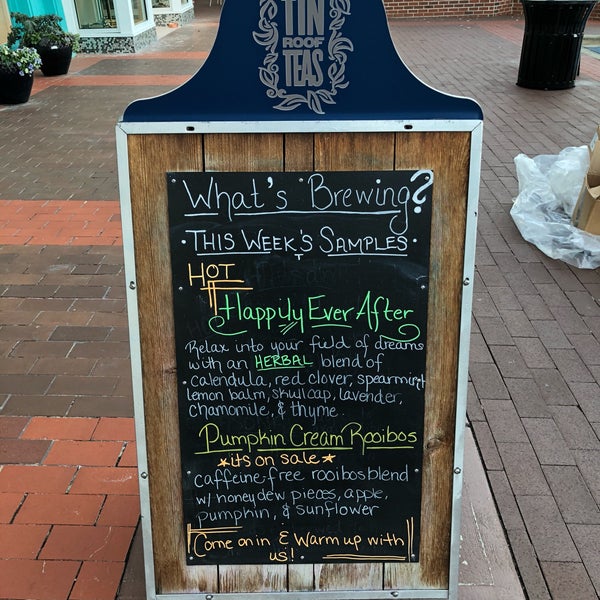 TIN
ROOF
TEAS
What's Brewing?
• THIS WEEK'S SAMPLES •
HOT
Happily Ever After
Relax into your field of dreams
with an HERBAL blend of
calendula, red clover, spearmint
lemon balm, skullcap, lavender,
chamomile, & thyme.
Pumpkin Cream Rooibos
*its on sale*
caffeine-free rooibos blend
w/ honeydew pieces, apple,
pumpkin, & sunflower
Come on in & Warm up with
us!